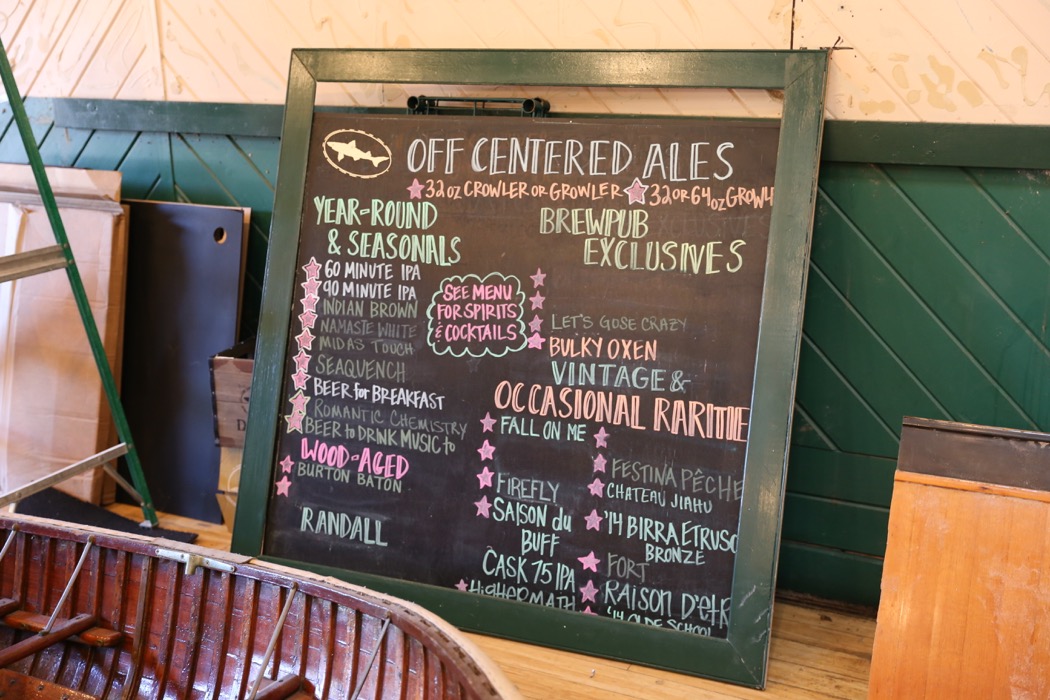 OFF CENTERED ALES
32 OZ CROWLER OR GROWLER 32 OR 64 OZ GROWL
YEAR-ROUND
& SEASONALS
60 MINUTE IPA
90 MINUTE IPA
INDIAN BROWN
NAMASTE WHITE
MIDAS TOUCH
SEAQUENCH
BEER for BREAKFAST
ROMANTIC CHEMISTRY
BEER to DRINK MUSIC to
WOOD-AGED
BURTON BATON
RANDALL
SEE MENU
FOR SPIRITS
& COCKTAILS
BREWPUB
EXCLUSIVES
LET'S GOSE CRAZY
BULKY OXEN
VINTAGE &
OCCASIONAL RARITIE
FALL ON ME
FIREFLY
SAISON du
BUFF
CASK 75 IPA
HIGHER MATH
FESTINA PÊCHE
CHATEAU JIAHU
'14 BIRRA ETRUSC
BRONZE
FORT
RAISON D'ETR
'14 OLDE SCHOOL